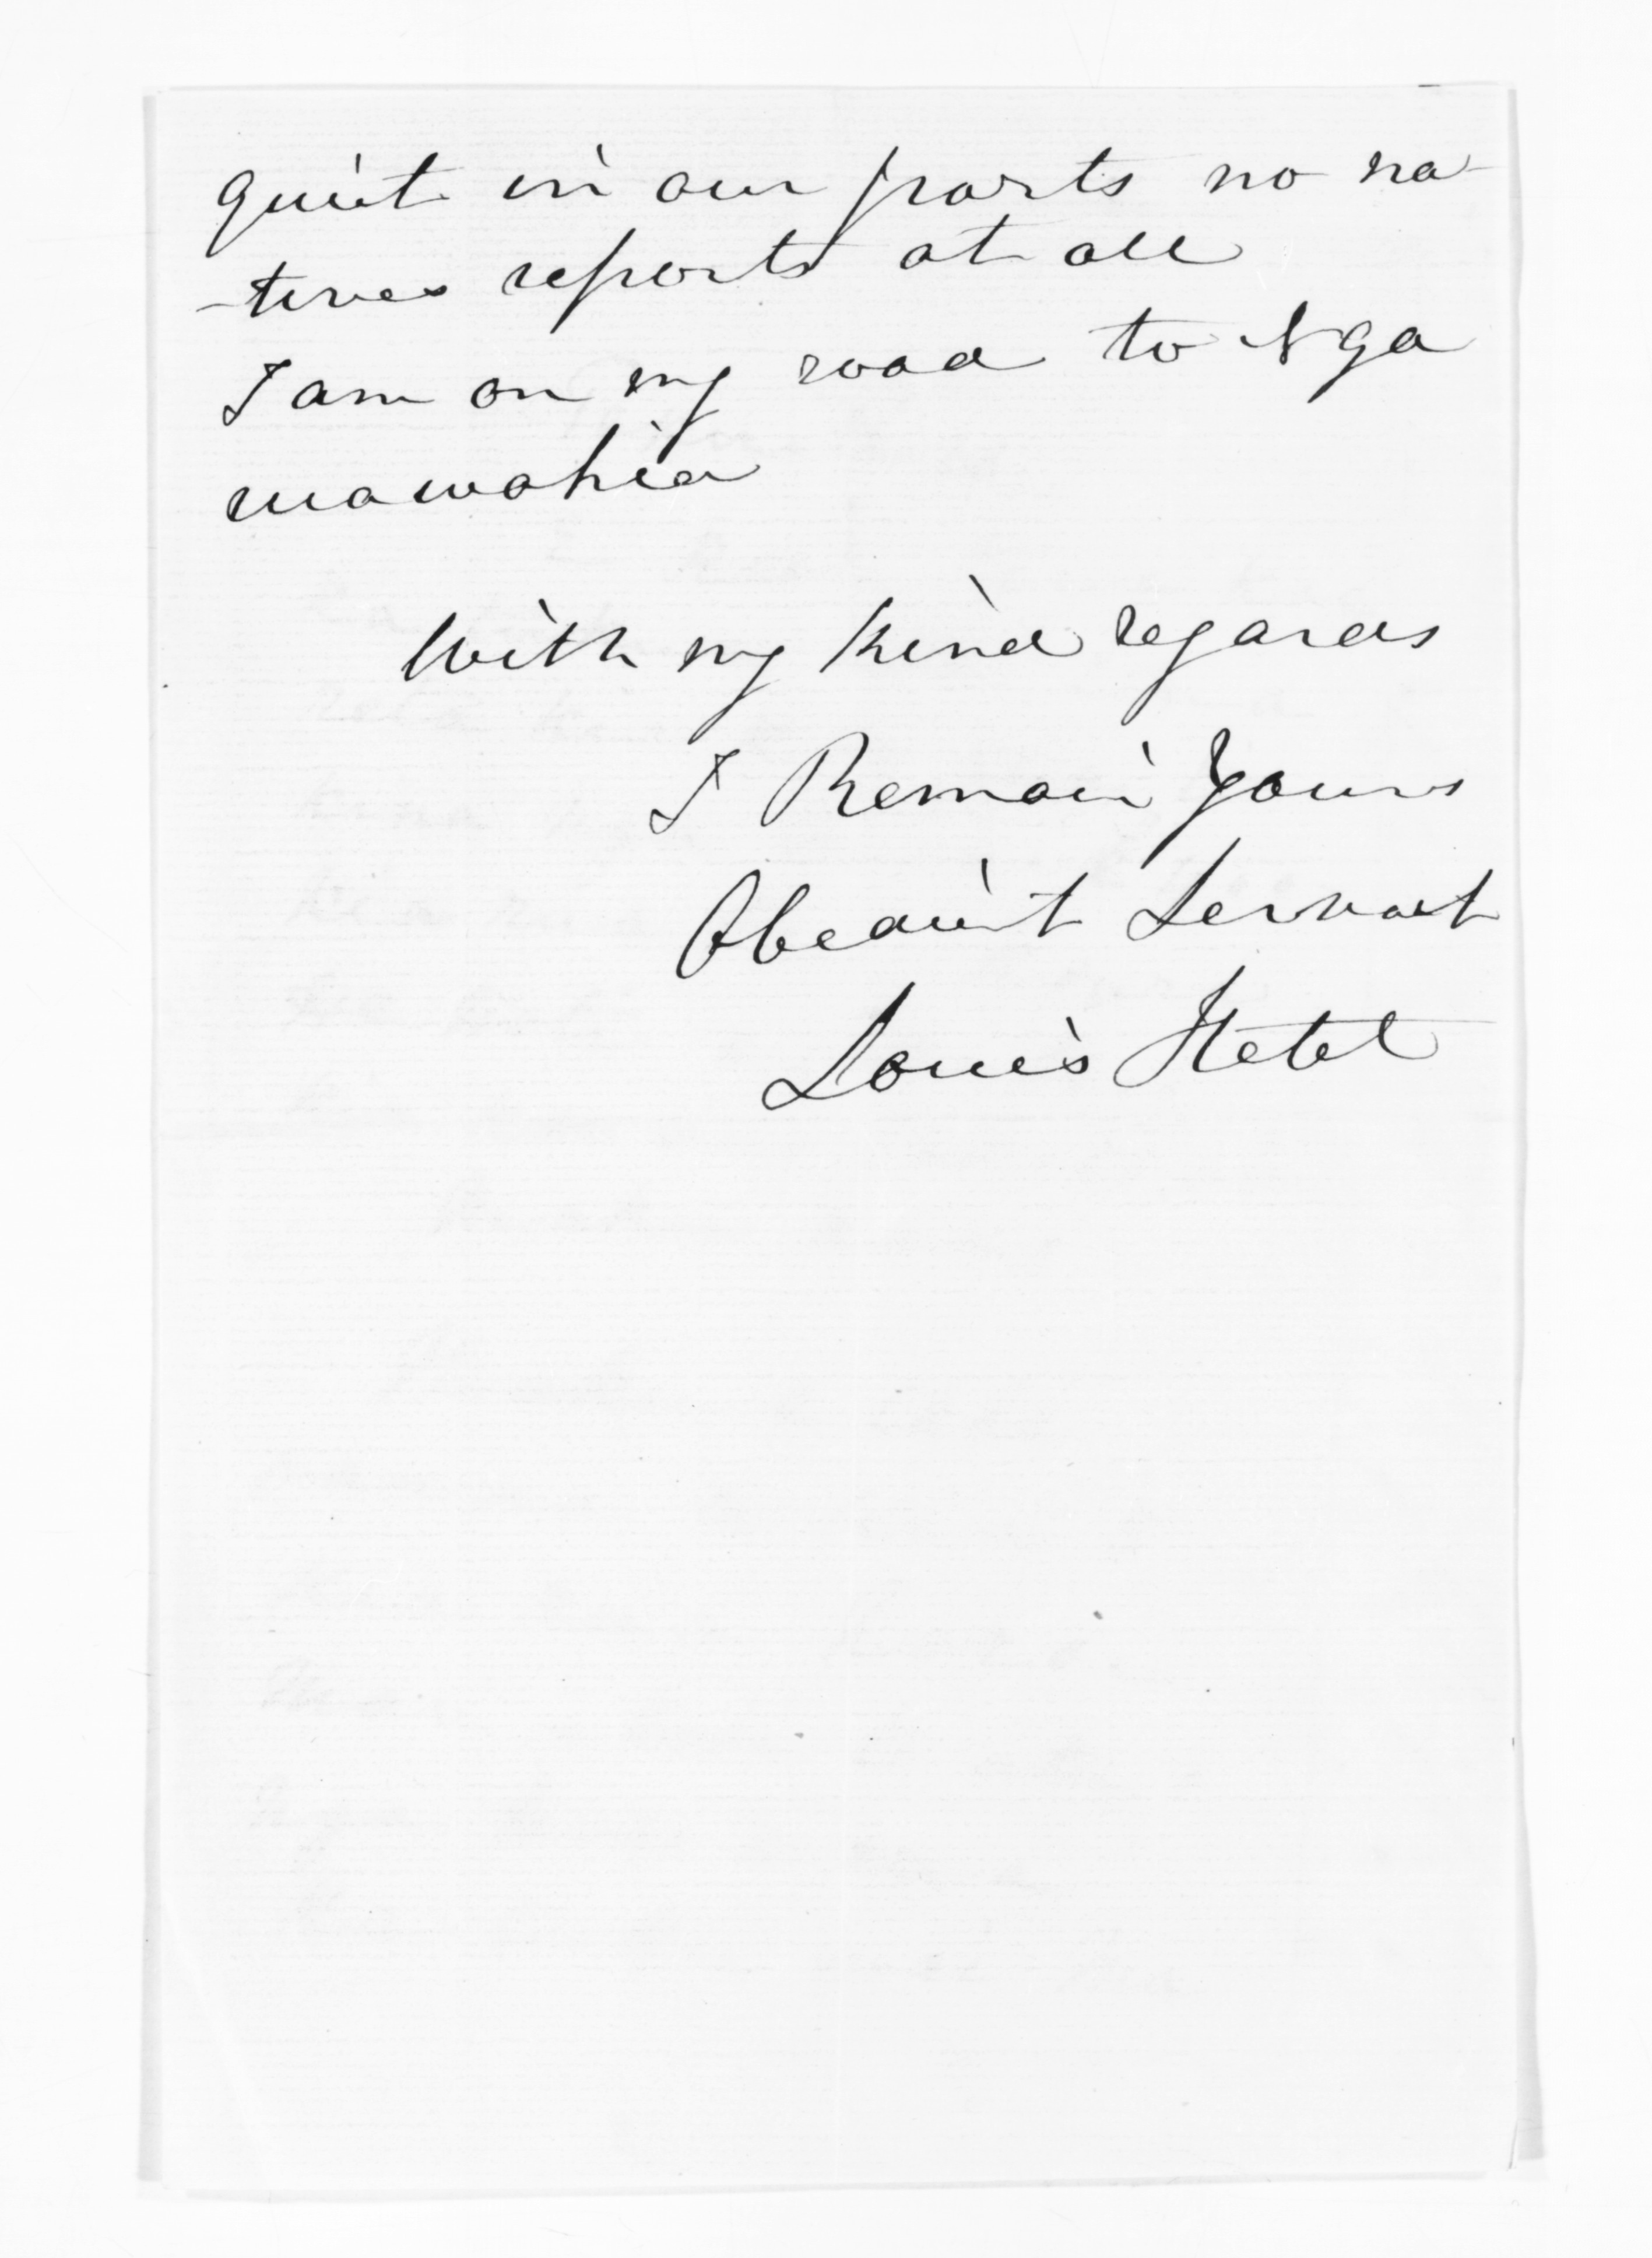 quiet in our parts no na-
-tives reports at all
I am on my road to Nga
mawahia
With my kind regards
I Remain Yours
Obedient Servant
Louis Hetet